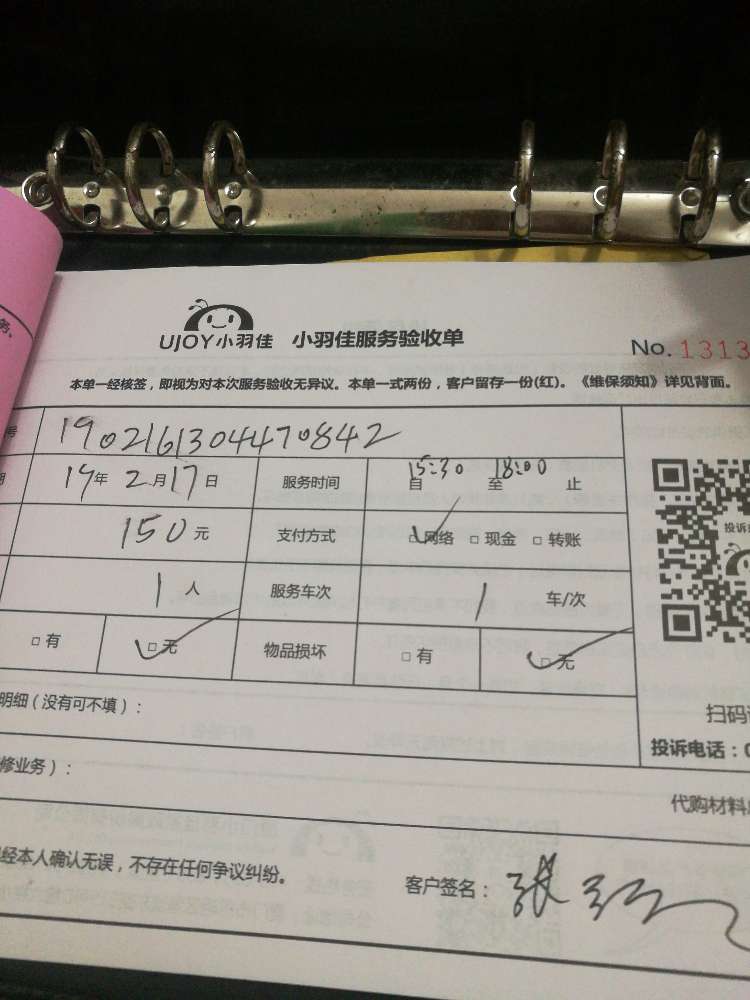 UJOY小羽佳 小羽佳服务验收单
No. 1313
本单一经核签，即视为对本次服务验收无异议。本单一式两份，客户留存一份(红)。《维保须知》详见背面。
务、
号 1902161304470842
期 19年 2月17日 服务时间 自15:30至18:00止
150元 支付方式 □网络 □现金 □转账
1人 服务车次 1车/次
□有 □无 物品损坏 □有 □无
投诉
扫码
明细（没有可不填）：
投诉电话：0
修业务）：
代购材料
经本人确认无误，不存在任何争议纠纷。
客户签名：张